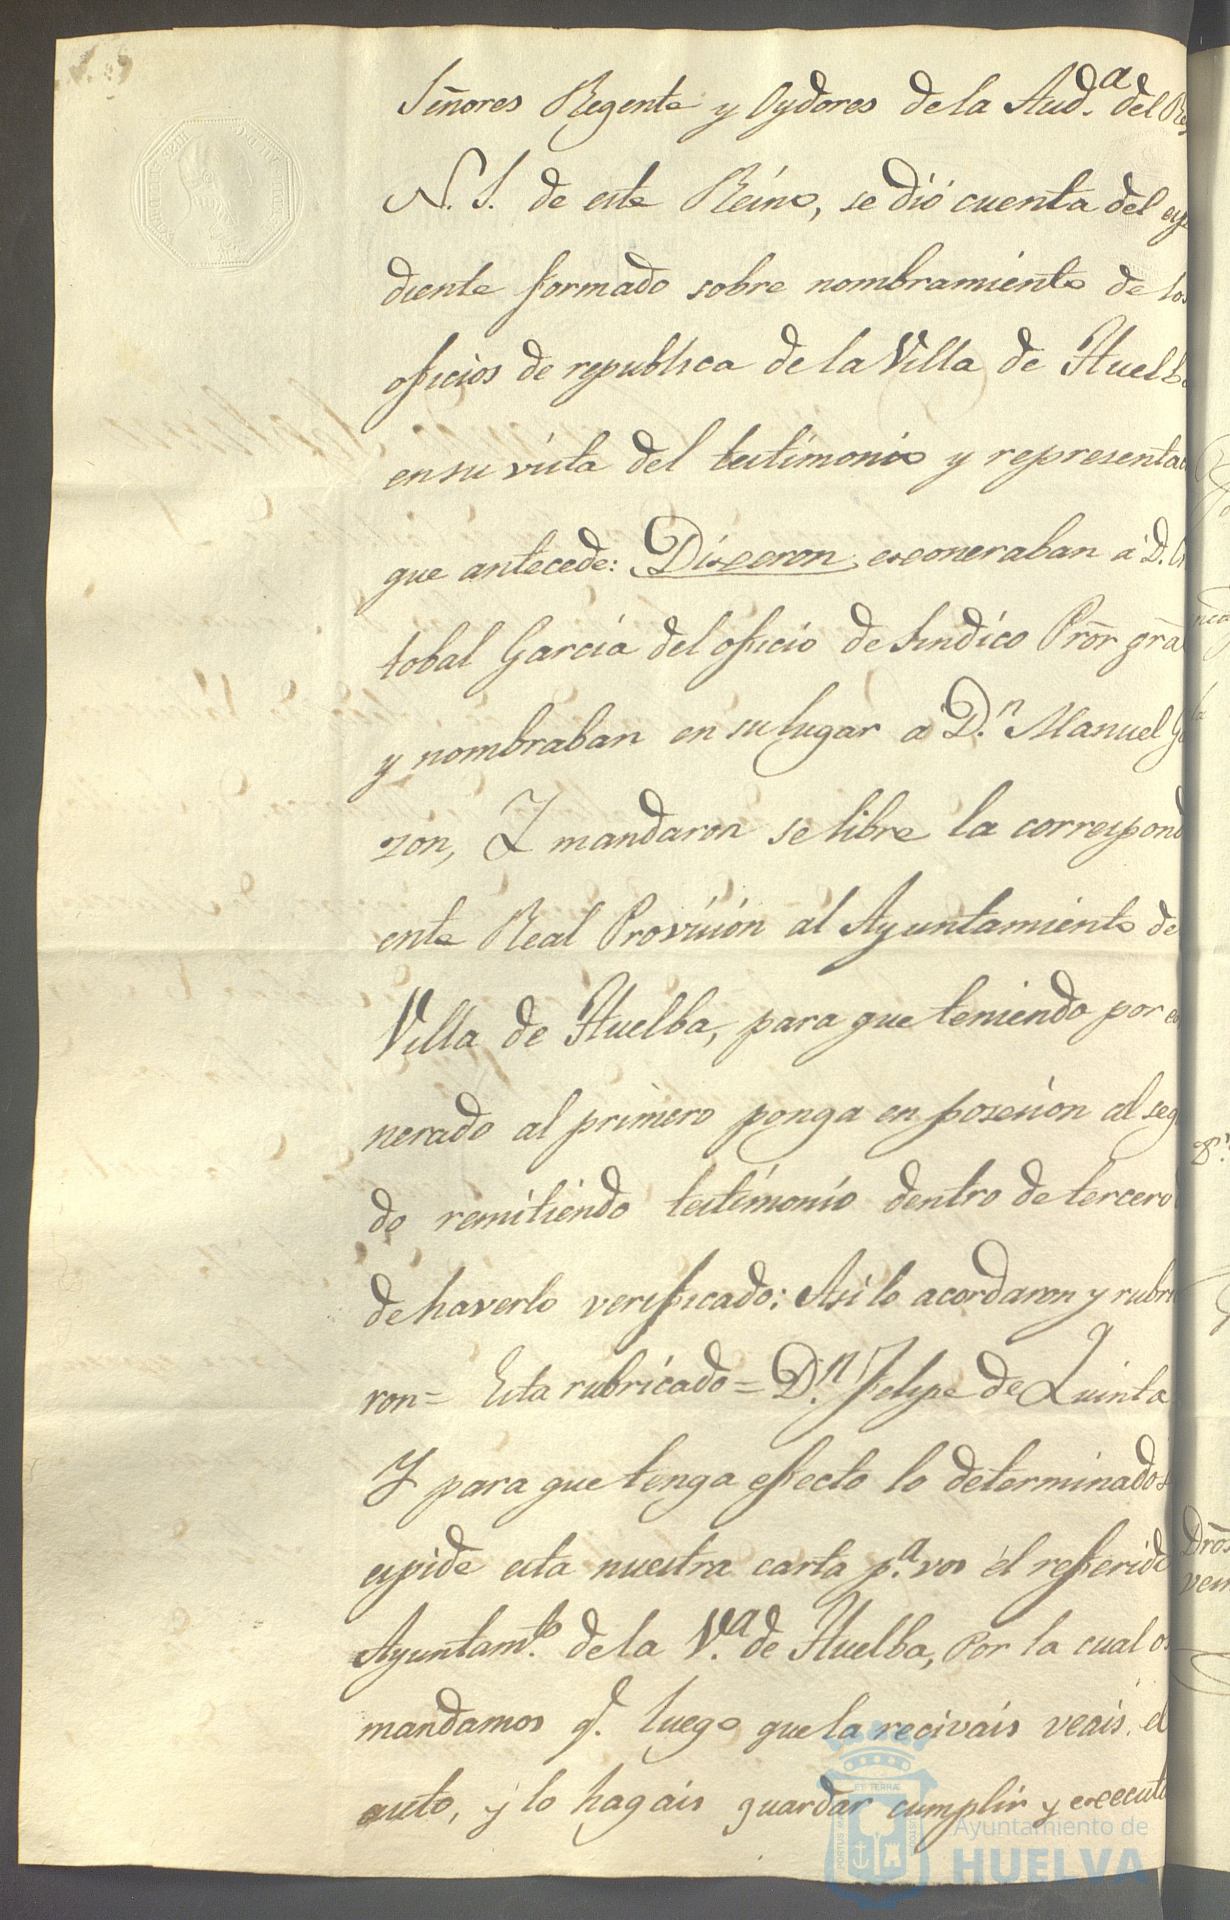 Señores Regente y Oydores de la Aud.ª del
N. S. de este Reino, se dió cuenta del
diente formado sobre nombramiento de los
oficios de republica de la Villa de Huelb
en su vista del testimonio y representa
que antecede: Dixeron, exoneraban á D.
tobal Garcia del oficio de Sindico Prōr grā
y nombraban en su lugar a D.n Manuel
zon, Y mandaron se libre la correspond
ente Real Provision al Ayuntamiento de
Villa de Huelba, para que teniendo por
nerado al primero ponga en posesion al seg
do remitiendo testimonio dentro de tercero
de haverlo verificado: Asi lo acordaron y rubri
ron = Esta rubricado = D.n Felipe de Quinta
Y para que tenga efecto lo determinado
espide esta nuestra carta p.a vos él referido
Ayuntam.to de la V.a de Huelba, Por la cual os
mandamos q.e luego que la recivais veais el
auto, y lo hagais guardar cumplir y executa
Drōs
PORTUS MARIS
ET TERRAE
CUSTODIA
Ayuntamiento de
HUELVA